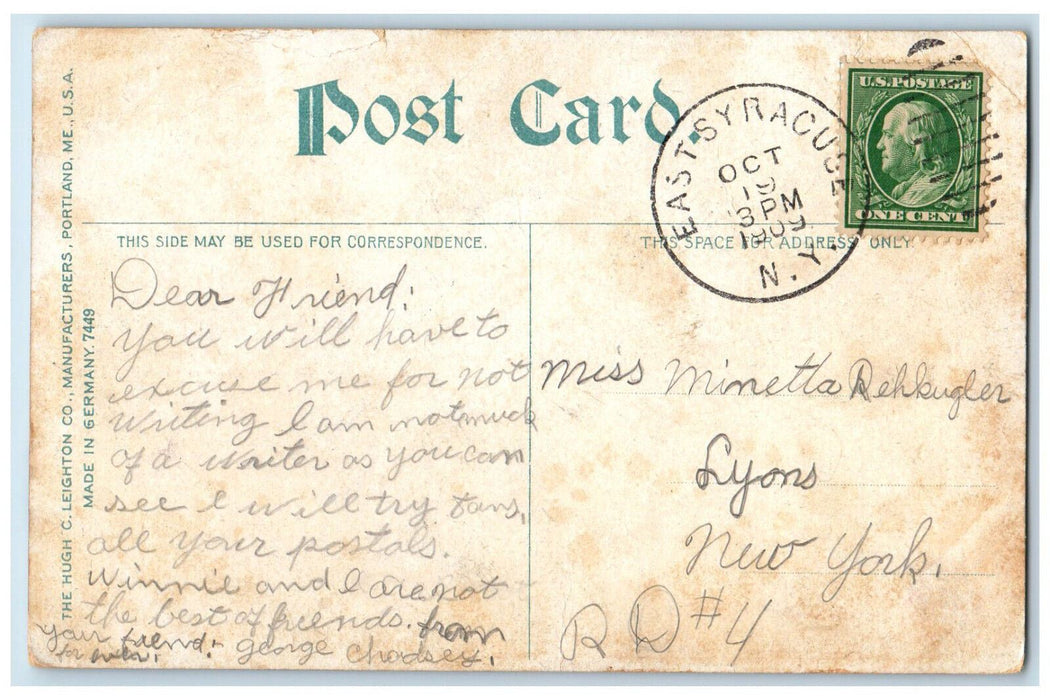 Post Card.
THE HUGH C. LEIGHTON CO., MANUFACTURERS, PORTLAND, ME., U.S.A.
MADE IN GERMANY. 7449
EAST SYRACUSE
OCT
19
3 PM
1909
N.Y.
U.S. POSTAGE
ONE CENT
THIS SIDE MAY BE USED FOR CORRESPONDENCE.
THIS SPACE FOR ADDRESS ONLY
Dear Friend:
You will have to
excuse me for not
writing I am not much
of a writer as you can
see I will try to ans,
all your postals.
Winnie and I are not
the best of friends. from
your friend:
for ever:
George Chadsey,
Miss Minetta Rehkugler
Lyons
New York,
R D #4